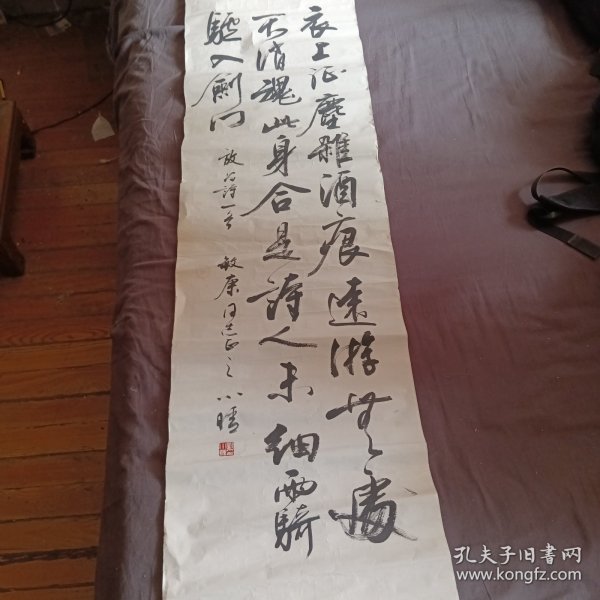 衣上征塵雜酒痕遠游無處
不消魂此身合是詩人未細雨騎
驢入劍門
放翁詩一首
敏康同志正之
小晴
孔夫子旧书网
www.kongfz.com